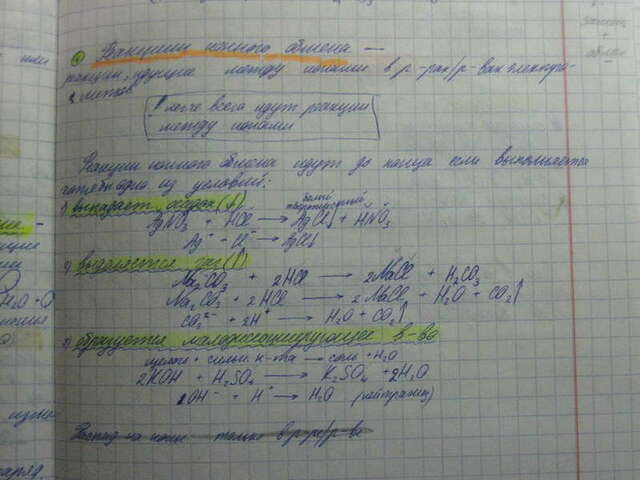 Реакции ионного обмена —
реакции, идущие между ионами в р-рах/р-вах электро-
литов
легче всего идут реакции
между ионами
Реакции ионного обмена идут до конца если выполняется
хотя бы одно из условий:
1) выпадает осадок (↓)
белый творожистый
AgNO₃ + HCl → AgCl↓ + HNO₃
Ag⁺ Cl⁻ → AgCl↓
2) выделяется газ (↑)
Na₂CO₃ + 2HCl → 2NaCl + H₂CO₃
Na₂CO₃ + 2HCl → 2NaCl + H₂O + CO₂↑
CO₃²⁻ + 2H⁺ → H₂O + CO₂↑
3) образуется малодиссоциирующее в-во
щелочь + сильн. к-та → соль + H₂O
2KOH + H₂SO₄ → K₂SO₄ + 2H₂O
OH⁻ + H⁺ → H₂O (нейтрализ)
на ионы только в р-ре/р-ве